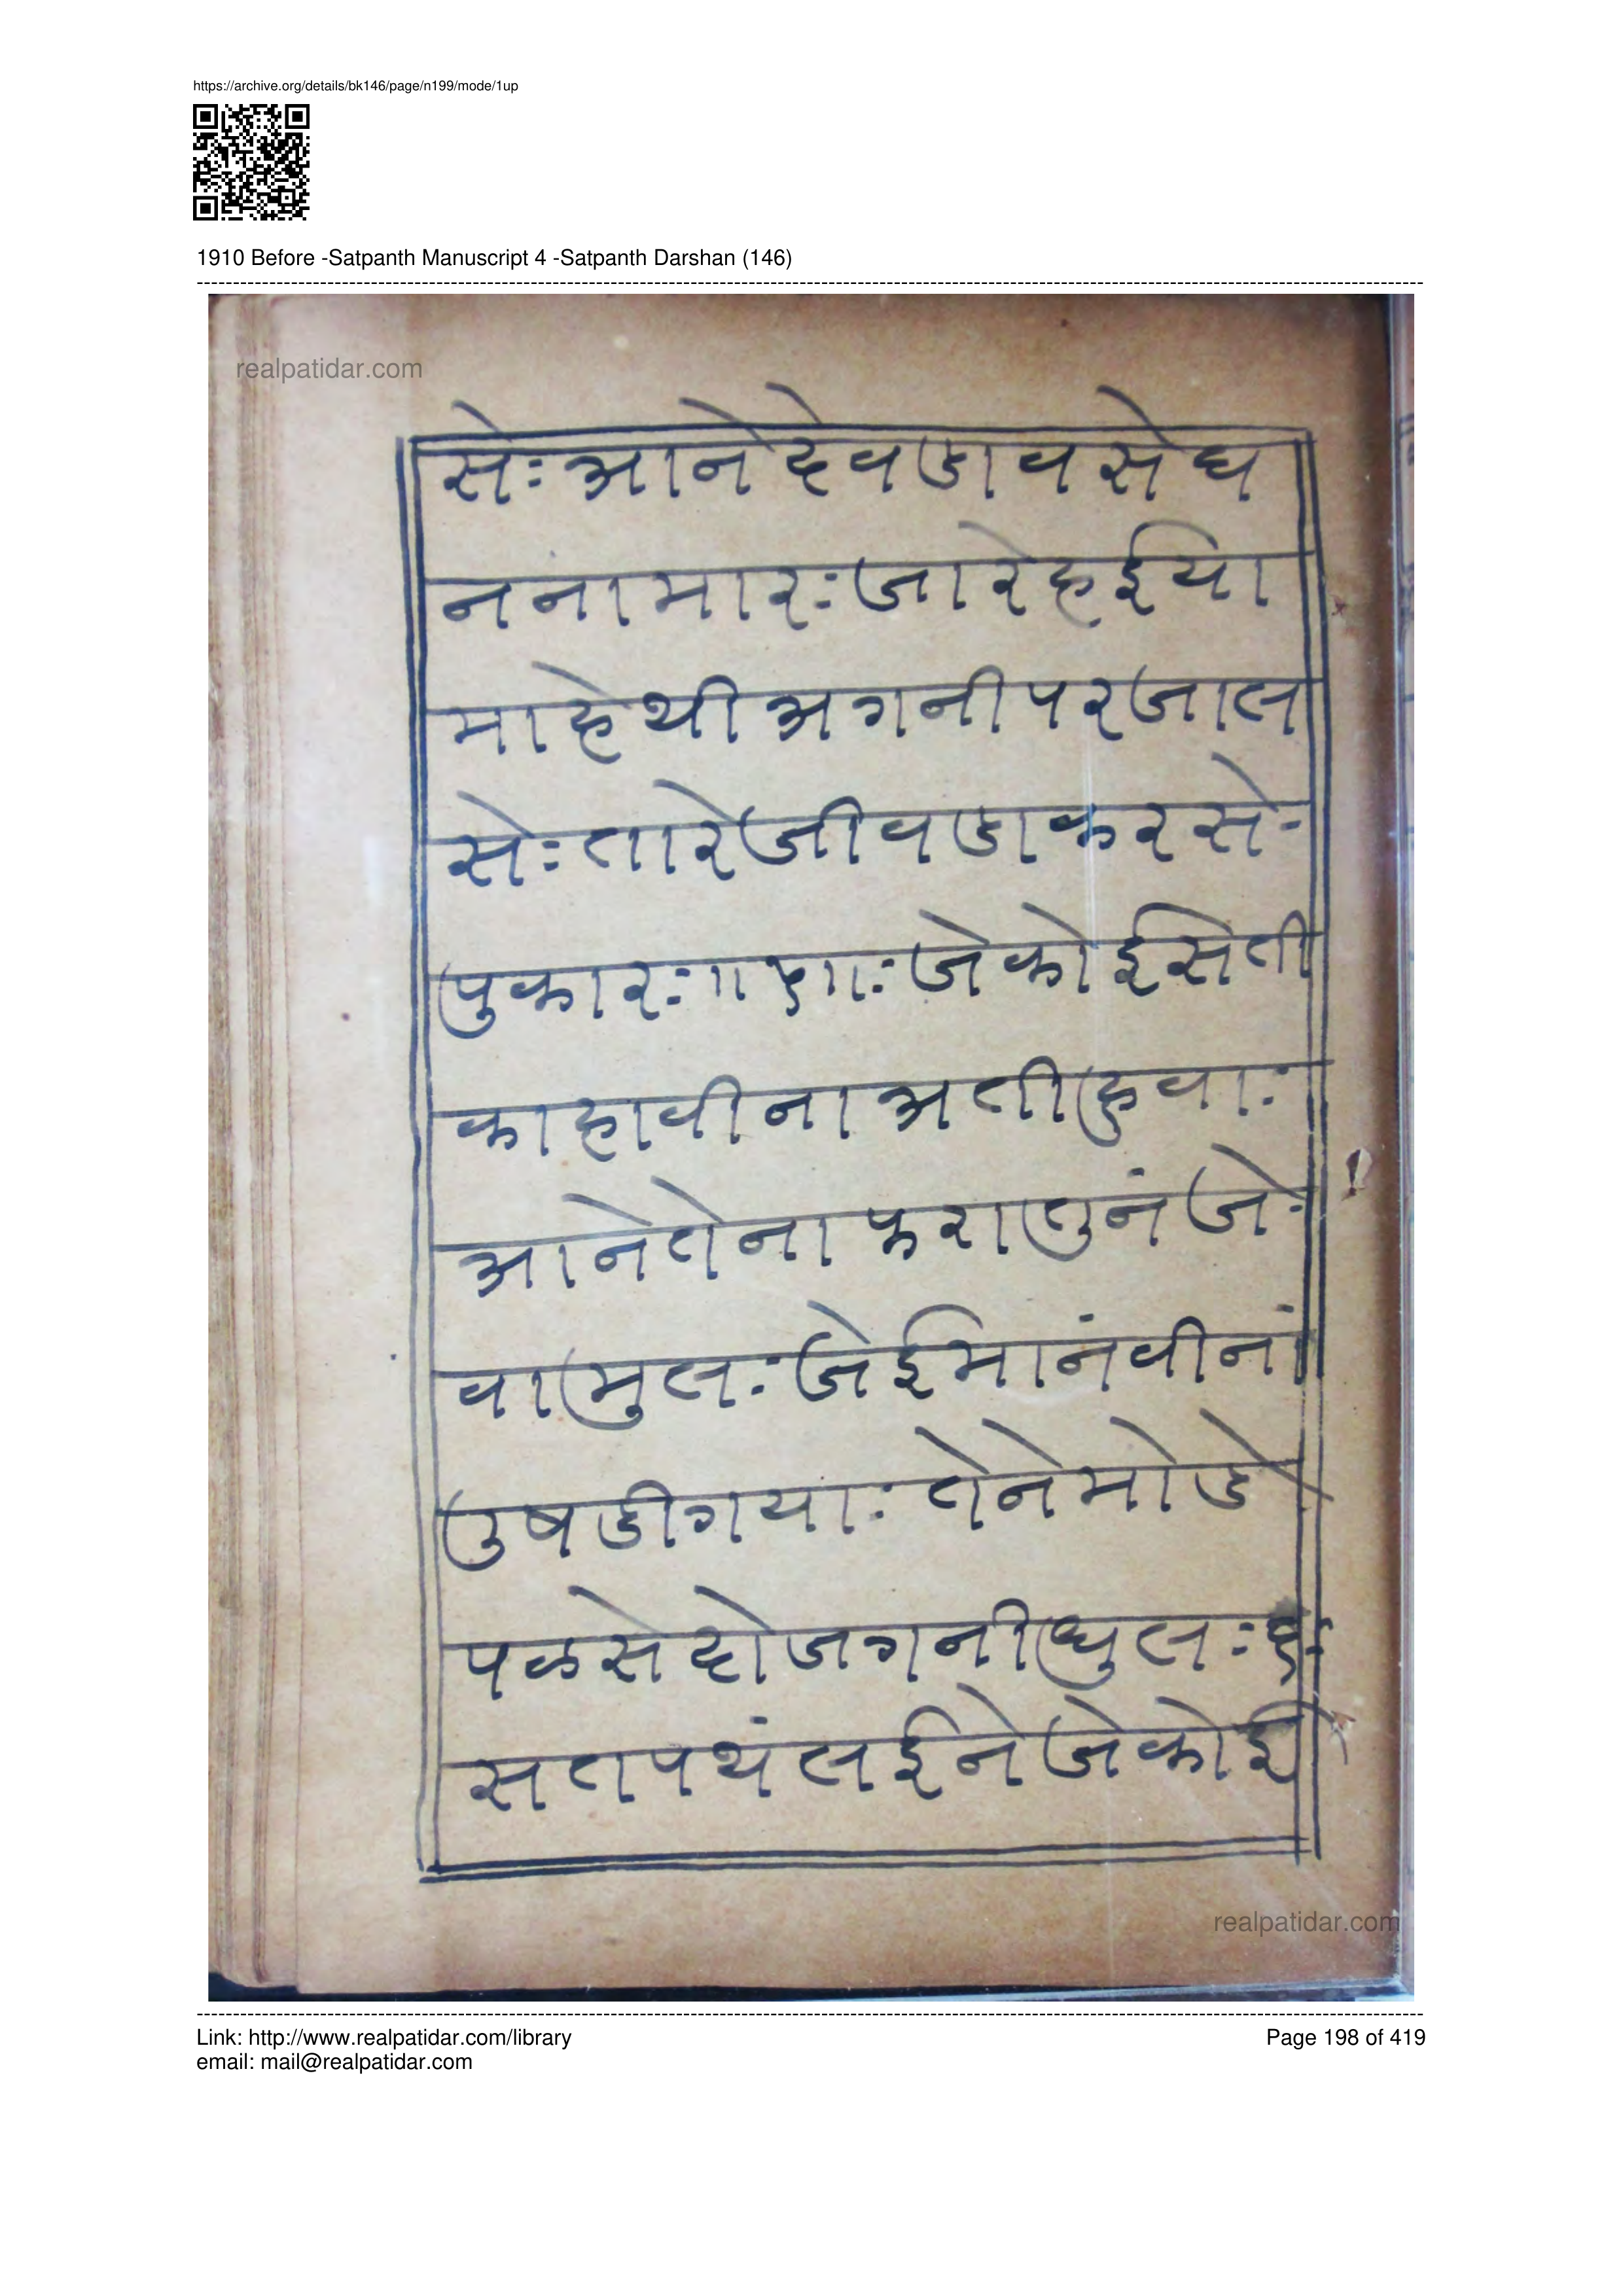 https://archive.org/details/bk146/page/n199/mode/1up
1910 Before -Satpanth Manuscript 4 -Satpanth Darshan (146)
realpatidar.com
सेः आने देवडाव सेघ
न नामारः जारे हईया
माहेथी अगनी परजाल
सेः तारे जीवडा करसे-
पुकारः॥५॥ः जे कोई सेती
काहावीना अती हुवाः
आने तेना फरा तुनं जे-
वा मुलः जे ईमानं वीनां
उषडी गयाः तेने मोडे
पळसे दोजगनी धुलः ६ः
सतपथं लईने जे कोई
realpatidar.com
Link: http://www.realpatidar.com/library
Page 198 of 419
email: mail@realpatidar.com